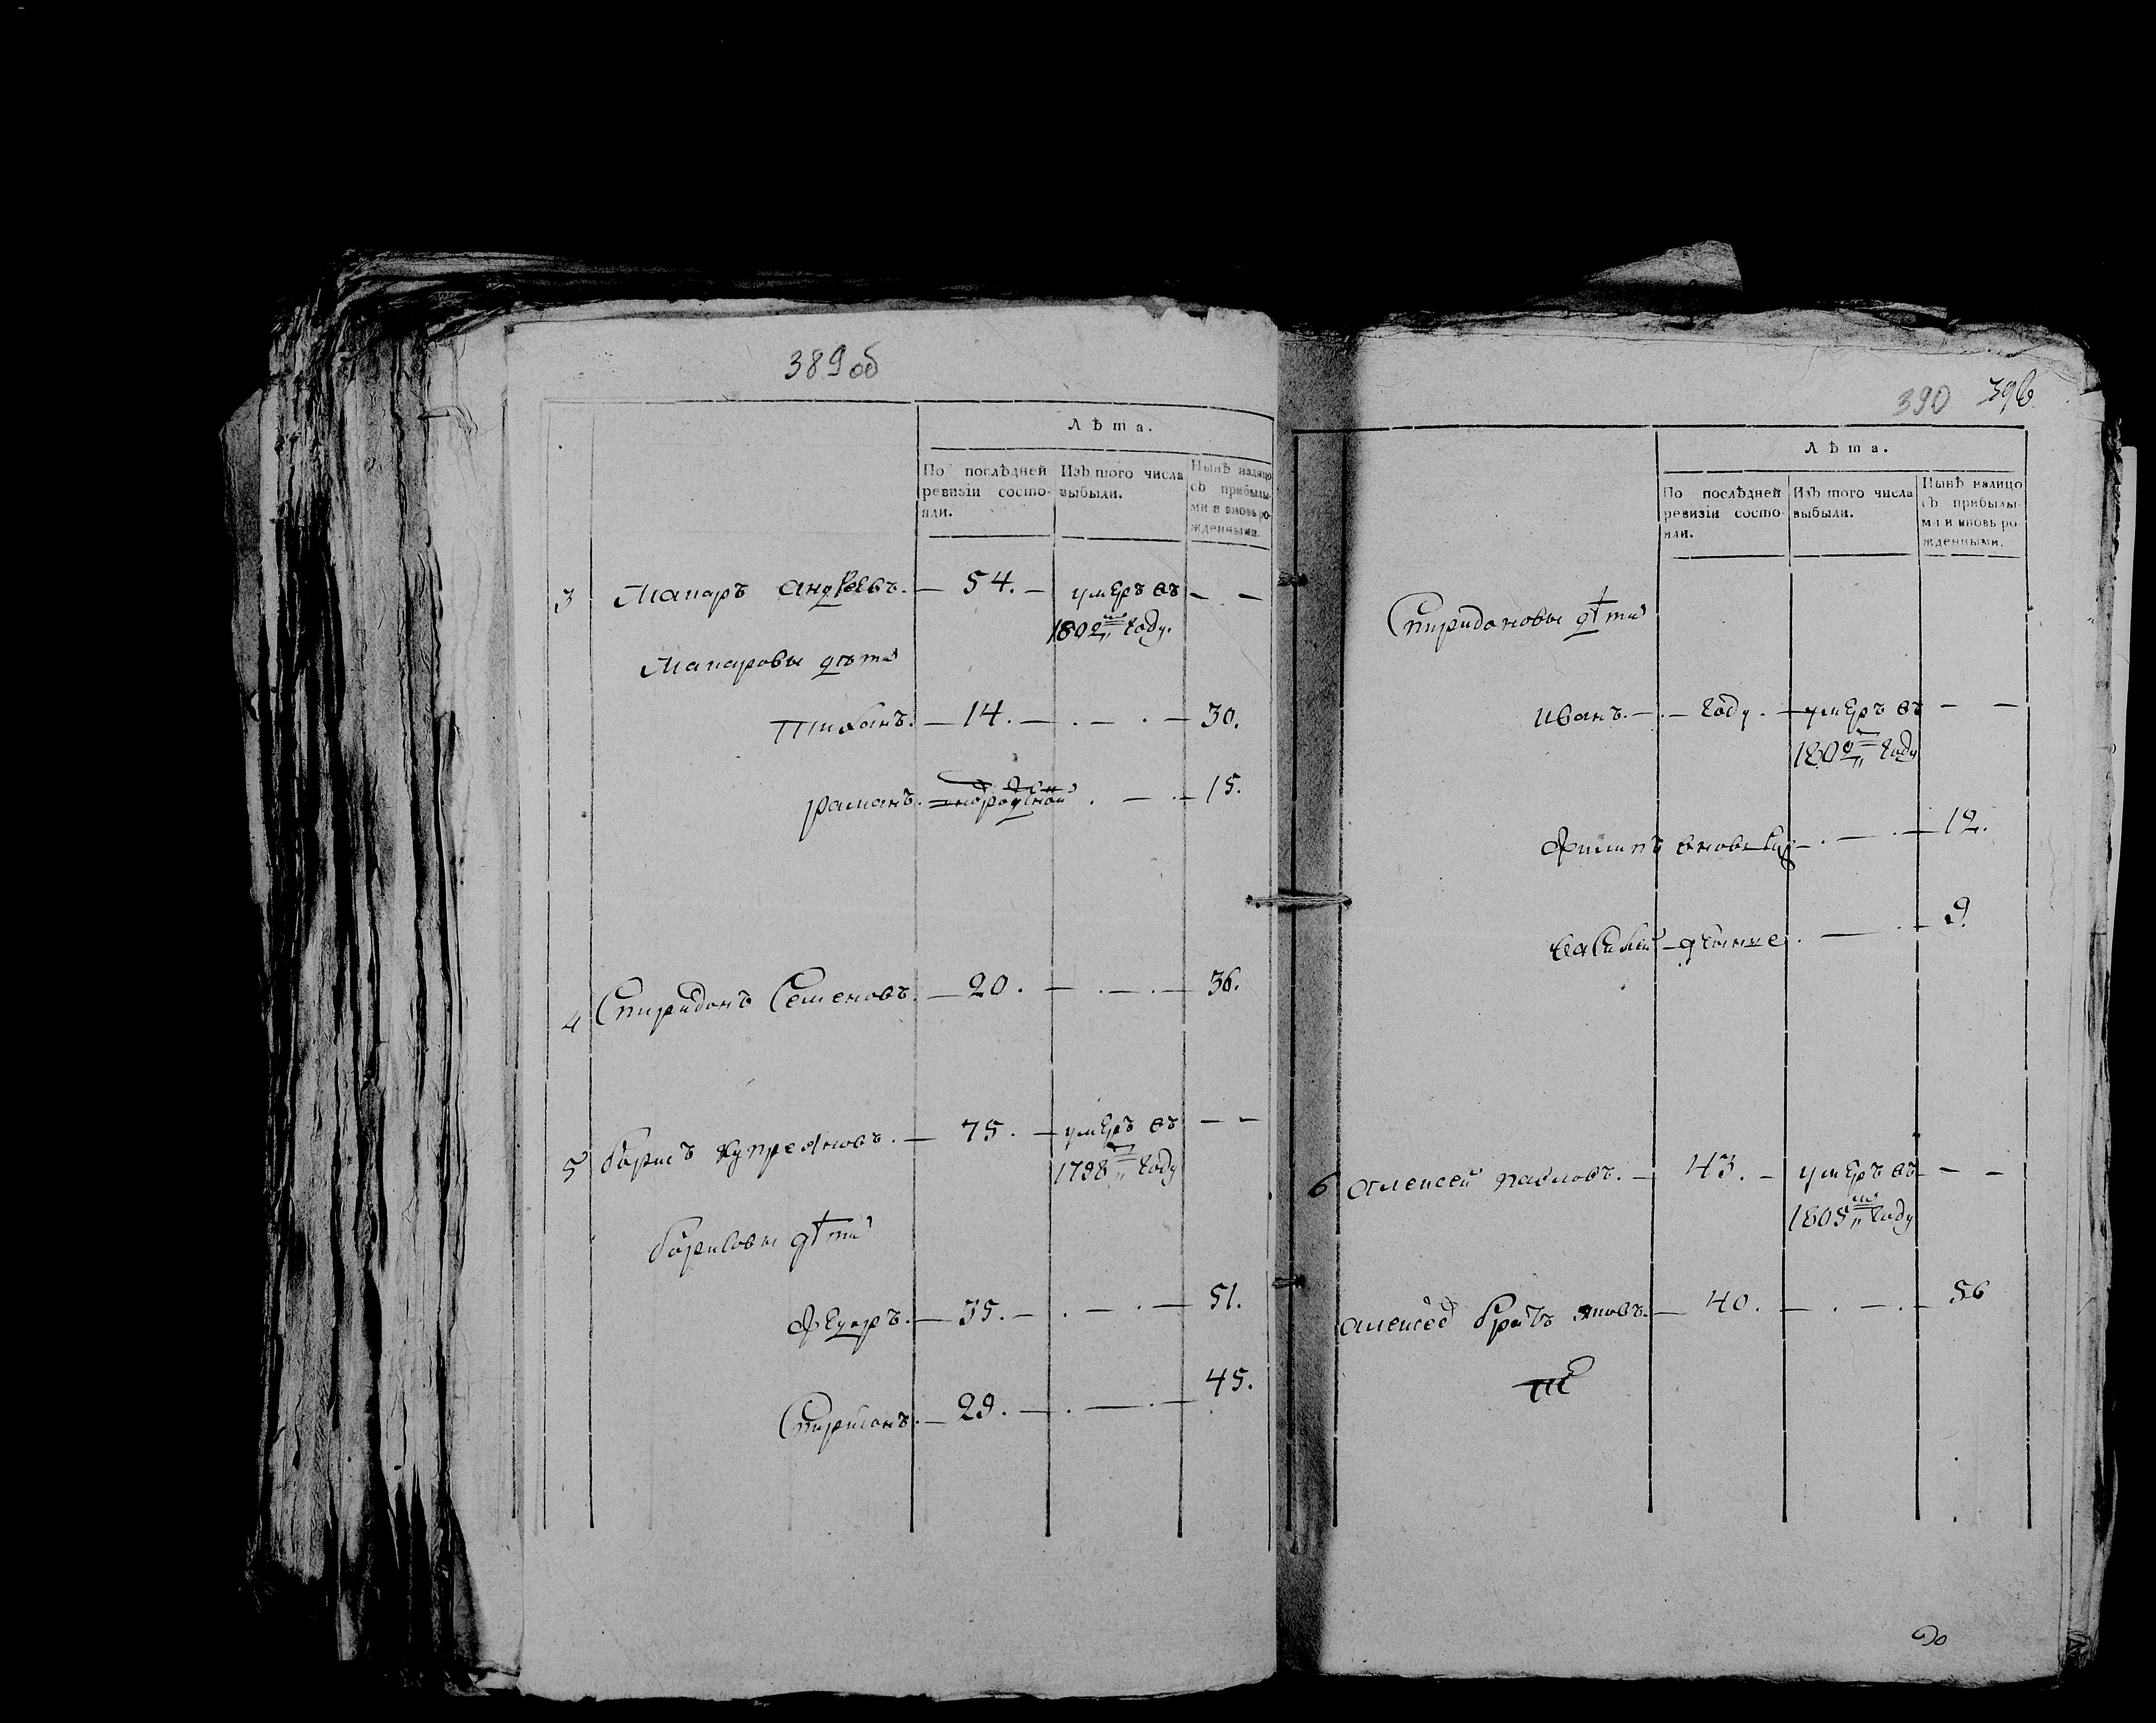 389 об
Лѣта.
По послѣдней ревизіи состояли.
Изъ того числа выбыли.
Нынѣ налицо съ прибылыми и вновь рожденными.
3 Макаръ Андреевъ. — 54. — умеръ въ — —
1802 м году.
Макаровы дѣти
Тихонъ. — 14. — . — . — 30.
раманъ. — . — . — 15.
4 Спиридонъ Семеновъ. — 20. — . — . — 36.
5 борисъ Купреяновъ. — 75. — умеръ въ — —
1798 м году
борисовы дѣти
Федоръ. — 35. — . — . — 51.
Спиридонъ. — 29. — . — . — 45.
390 396
Лѣта.
По послѣдней ревизіи состояли.
Изъ того числа выбыли.
Нынѣ налицо съ прибылыми и вновь рожденными.
Спиридоновы дѣти
Иванъ. — . — году. — умеръ въ — —
1802 м году
Филипъ — . — . — 12.
Василей — . — . — 9.
6 Алексей павловъ. — 43. — умеръ въ — —
1805 м году
Алексея братъ — 40. — . — . — 56
до